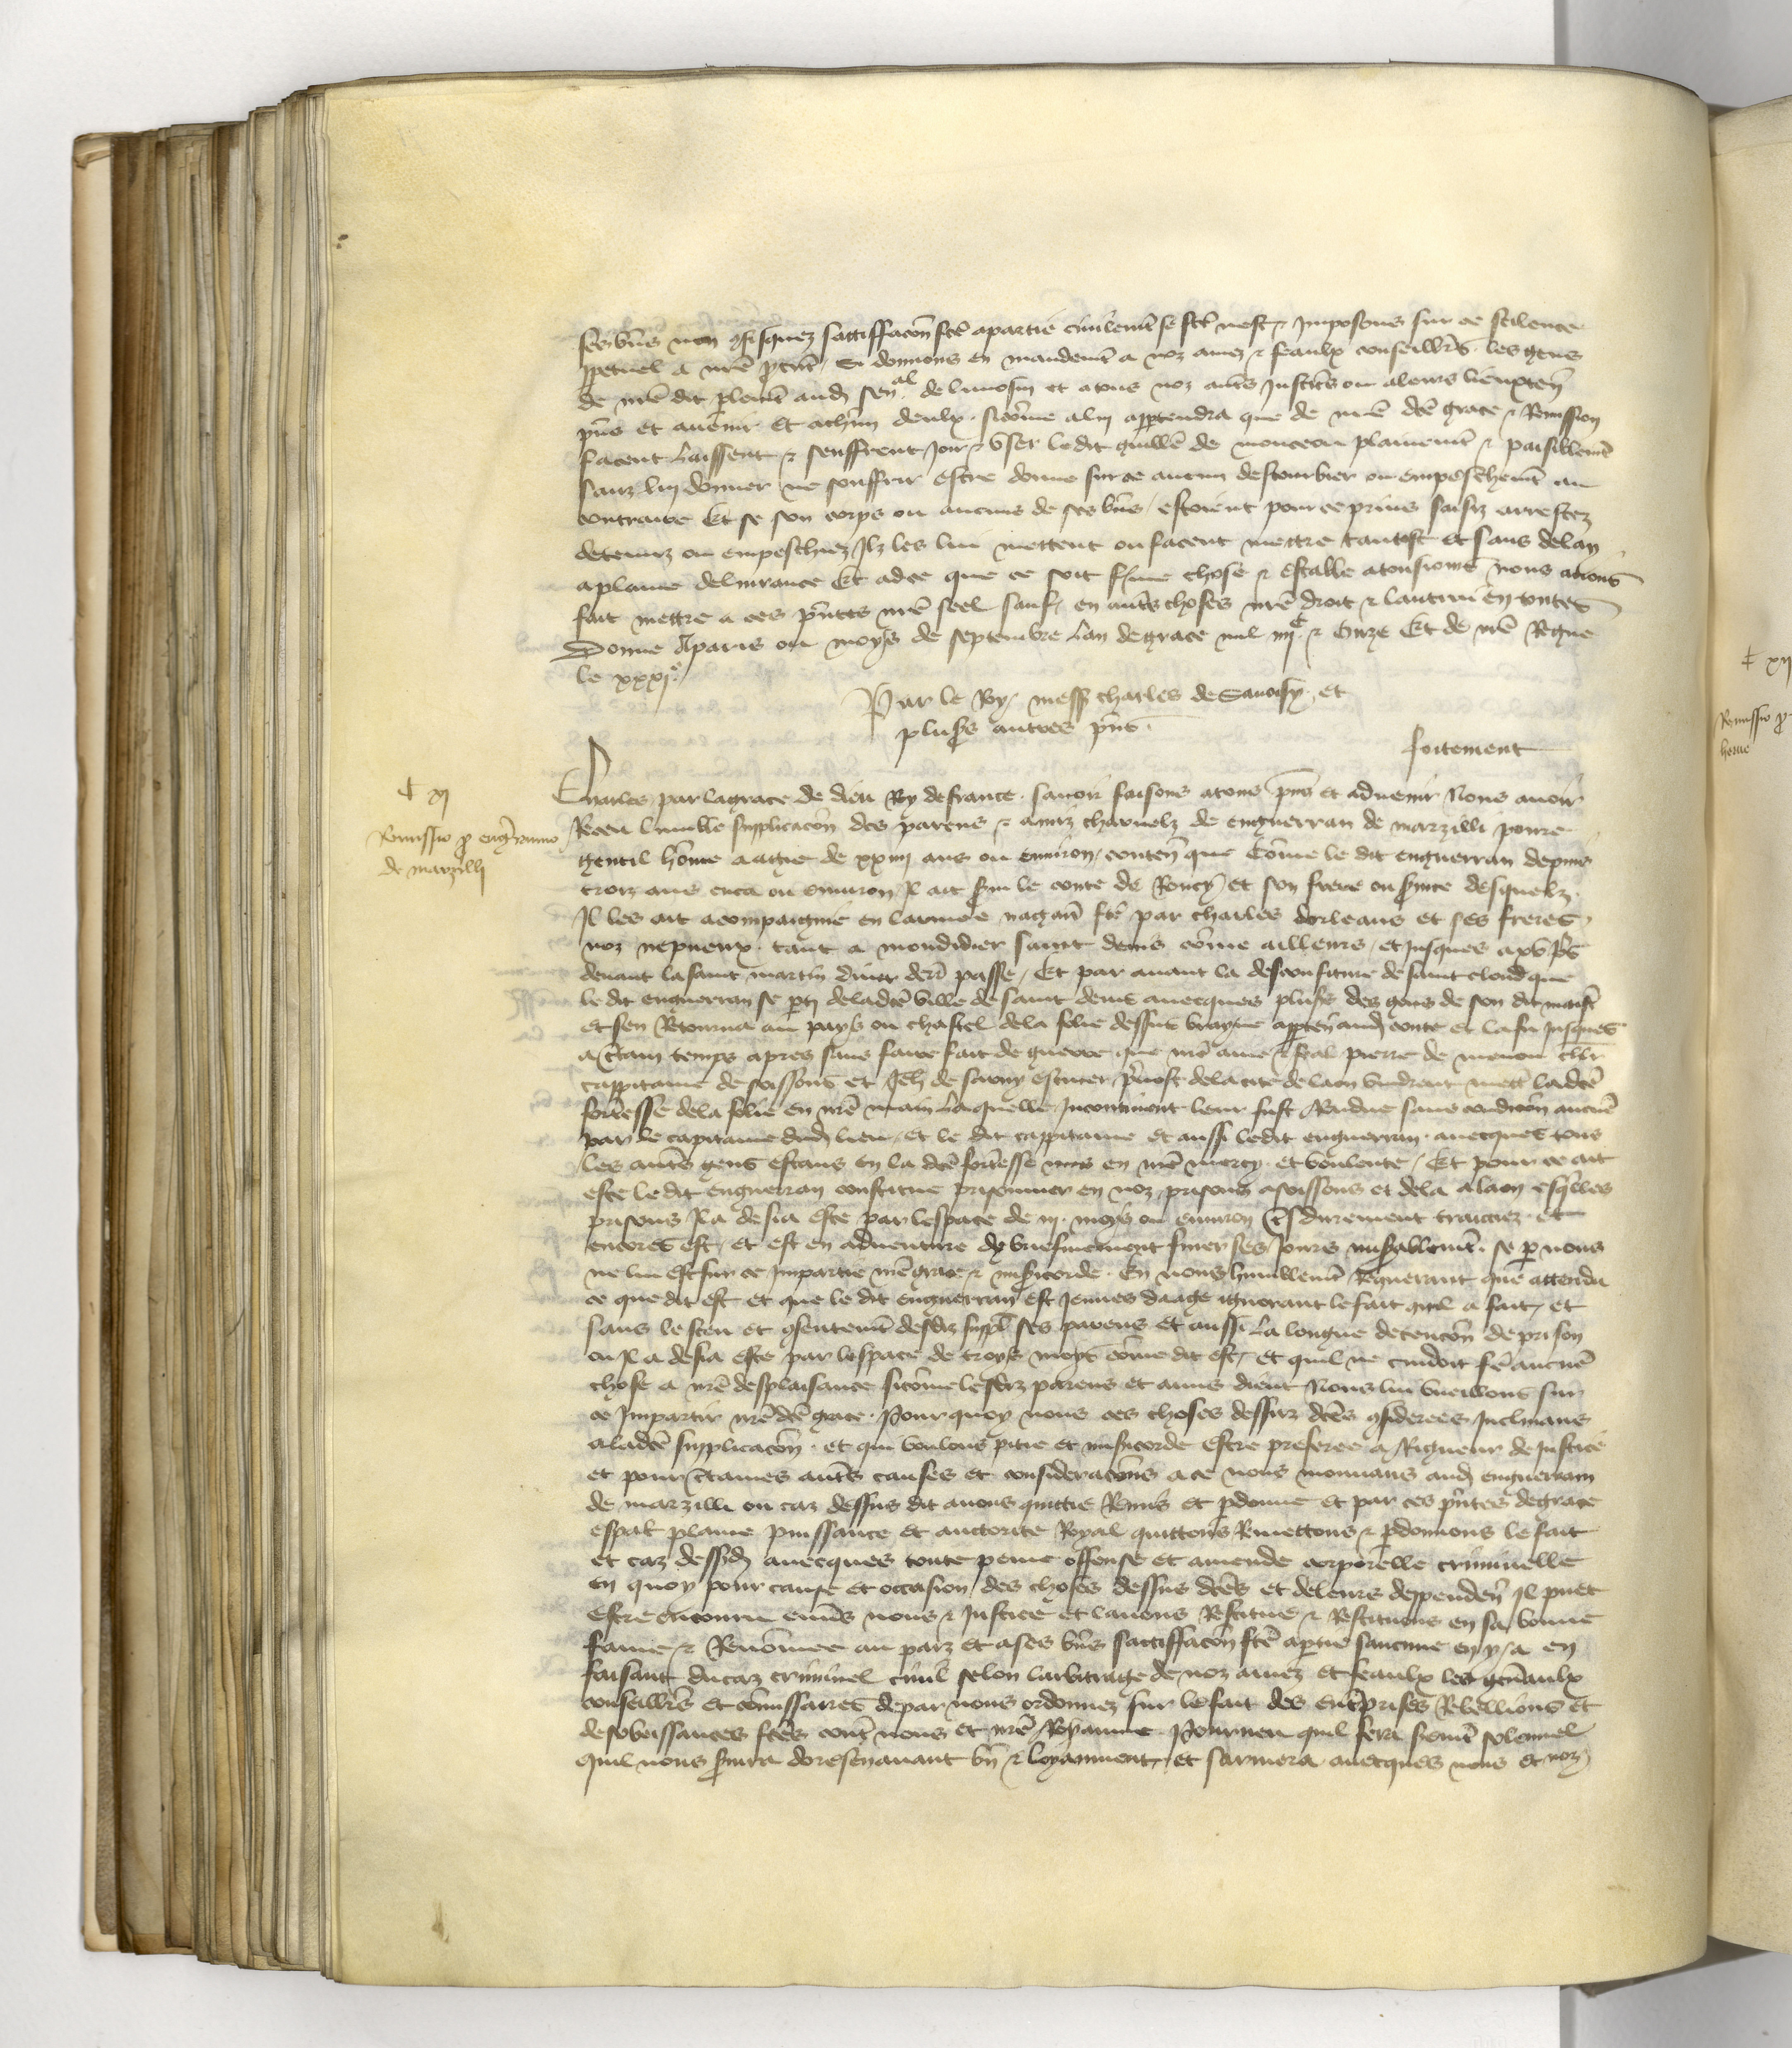 ses biens non confisquez satisffacon fcte a partie civilemt se fcte nest et Imposons sur ce scilence
perpetuel a nre procur Si donnons en mandemt a noz amez et feaulx conseillrs les gens
de nre dit plemt aud sen.al de limosin et a tous noz autrs Justicrs ou a leurs lieuxten
pns et avenir Et a chun deulx sicome a luy appartendra que de nre dcte grace et Remission
facent laissent et seuffrent joir et user le dit guille de monceau plainemt et paisiblemt
sanz luy donner ne souffrir estre donne sur ce aucun destourbier ou empeschemt au
contraire Et se son corps ou aucuns de ses bns estoient pour ce prins saisiz arrestez
detenuz ou empeschiez Ilz les lui mettent ou facent mettre tantost et sans delay
a plaine delivrance Et ad ce que ce soit ferme chose et estable a tousjours nous avons
fait mettre a ces pntes nre seel sauf en autrs choses nre droit et lautrui en toutes
Donne A paris ou moys de septembre Lan de grace mil iiijc et Unze Et de nre Regne
le xxxje
Par le Roy mess charles de Savoisy et
plusrs autres pns
fortement
xj
Remissio pro engueranno
de marzilly
Charles par la grace de dieu Roy de france savoir faisons a tous pns et advenir Nous avoir
Receu lumble supplicacon des parens et amiz charnelz de enguerran de marzilli povre
gentil home aagie de xxiiij ans ou environ conten que Come le dit enguerran depuis
troiz ans enca ou environ Il ait servi le conte de Roucy et son frere ou service desquelz
Il les ait acompaignie en larmee nagair fcte par charles dorleans et ses freres
noz nepveux tant a mondidier saint denis come ailleurs et jusques a xv jrs
devant la saint martin diver derr passe Et par avant la desconfiture de saint cloud que
le dit enguerran se parti de la dcte ville de saint denis avecques plusrs des gens de son dit maistr
et sen Retourna au pays ou chastel de la folie dessus brayne apparten aud conte et la fu jusques
a certain temps apres sans faire fait de guerre que nre ame et feal pierre de menou chlr
cappitaine de soissons et Jeh de savny escuier prevost de la cite de laon vindrent mett la dcte
forteresse de la folie en nre main La quelle Incontinent leur fust Rendue sans condicon aucune
par le capitaine dud lieu et le dit cappitaine et aussi ledit enguerran avecques tous
les autrs gens estans en la dcte forteresse mis en nre mercy et voulente Et pour ce ait
este le dit enguerran constitue prisonnier en noz prisons a soissons et de la a laon esquelles
prisons Il a desia este par lespace de iij moys ou environ tres durement traictiez et
encores est et est en adventure de briefvement finer ses jours miserablemt se par nous
ne lui est sur ce Impartie nre grace et misericorde En nous humblemt Requerant que attendu
ce que dit est et que le dit enguerran est Jeunes daage ignorant le fait quil a fait et
sans le sceu et consentemt desdiz suppl ses parens Et aussi La longue detencon de prison
ou Il a desia este par lespace de troys moys come dit est et quil ne cuidoit fe aucune
chose a nre desplaisance si come lesdiz parens et amis dient Nous lui vueillons sur
ce Impartir nre dcte grace Pour quoy nous ces choses dessuz dctes considerees Inclinans
a la dcte supplicacon et qui voulons pitie et misericorde estre preferee a Rigueur de Justice
et pour certaines autrs causes et consideracons a ce nous mouvans aud enguerran
de marzilli ou caz dessus dit avons quittie Remis et pardonne et par ces pntes de grace
espal plaine puissance et auctorite Royal quittons Remettons et pardonnons le fait
et caz dessusd avecques toute peine offense et amende corporelle criminelle
en quoy pour cause et occasion des choses dessus dctes et de leurs dependen Il puet
estre encouru envrs nous et Justice et lavons Restitue et Restituons en sa bonne
fame et Renomee au paiz et a ses bns sattisffacon fcte a partie saucune en y a en
faisant du caz criminel civil selon larbitrage de noz amez et feaulx les genaulx
conseillrs et comissaires de par nous ordonnez sur le fait des entreprises Rebellions et
desobeissances fctes contr nous et nre Royaume Pourveu quil fera sermt solennel
quil nous servira doresenavant bn et loyaument et sarmera avecques nous et noz
xij
Remissio pro